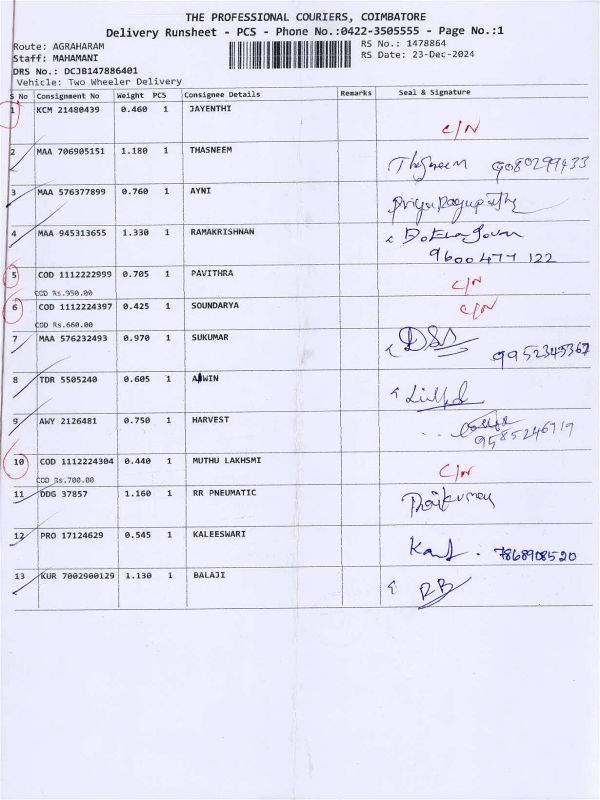 THE PROFESSIONAL COURIERS, COIMBATORE
Delivery Runsheet - PCS - Phone No.:0422-3505555 - Page No.:1
Route: AGRAHARAM RS No.: 1478864
Staff: MAHAMANI RS Date: 23-Dec-2024
DRS No.: DCJB147886401
Vehicle: Two Wheeler Delivery
S No Consignment No Weight PCS Consignee Details Remarks Seal & Signature
1 KCM 21480439 0.460 1 JAYENTHI
C/N
2 MAA 706905151 1.180 1 THASNEEM
Thasneem 9080299433
3 MAA 576377899 0.760 1 AYNI
Priya Ragupathy
4 MAA 945313655 1.330 1 RAMAKRISHNAN
9600477 122
5 COD 1112222999 0.705 1 PAVITHRA
C/N
COD Rs.950.00
6 COD 1112224397 0.425 1 SOUNDARYA
C/N
COD Rs.660.00
7 MAA 576232493 0.970 1 SUKUMAR
9952345367
8 TDR 5505240 0.605 1 AWIN
9 AWY 2126481 0.750 1 HARVEST
9585246719
10 COD 1112224304 0.440 1 MUTHU LAKHSMI
C/N
COD Rs.700.00
11 DDG 37857 1.160 1 RR PNEUMATIC
12 PRO 17124629 0.545 1 KALEESWARI
7868908520
13 KUR 7002900129 1.130 1 BALAJI
RB